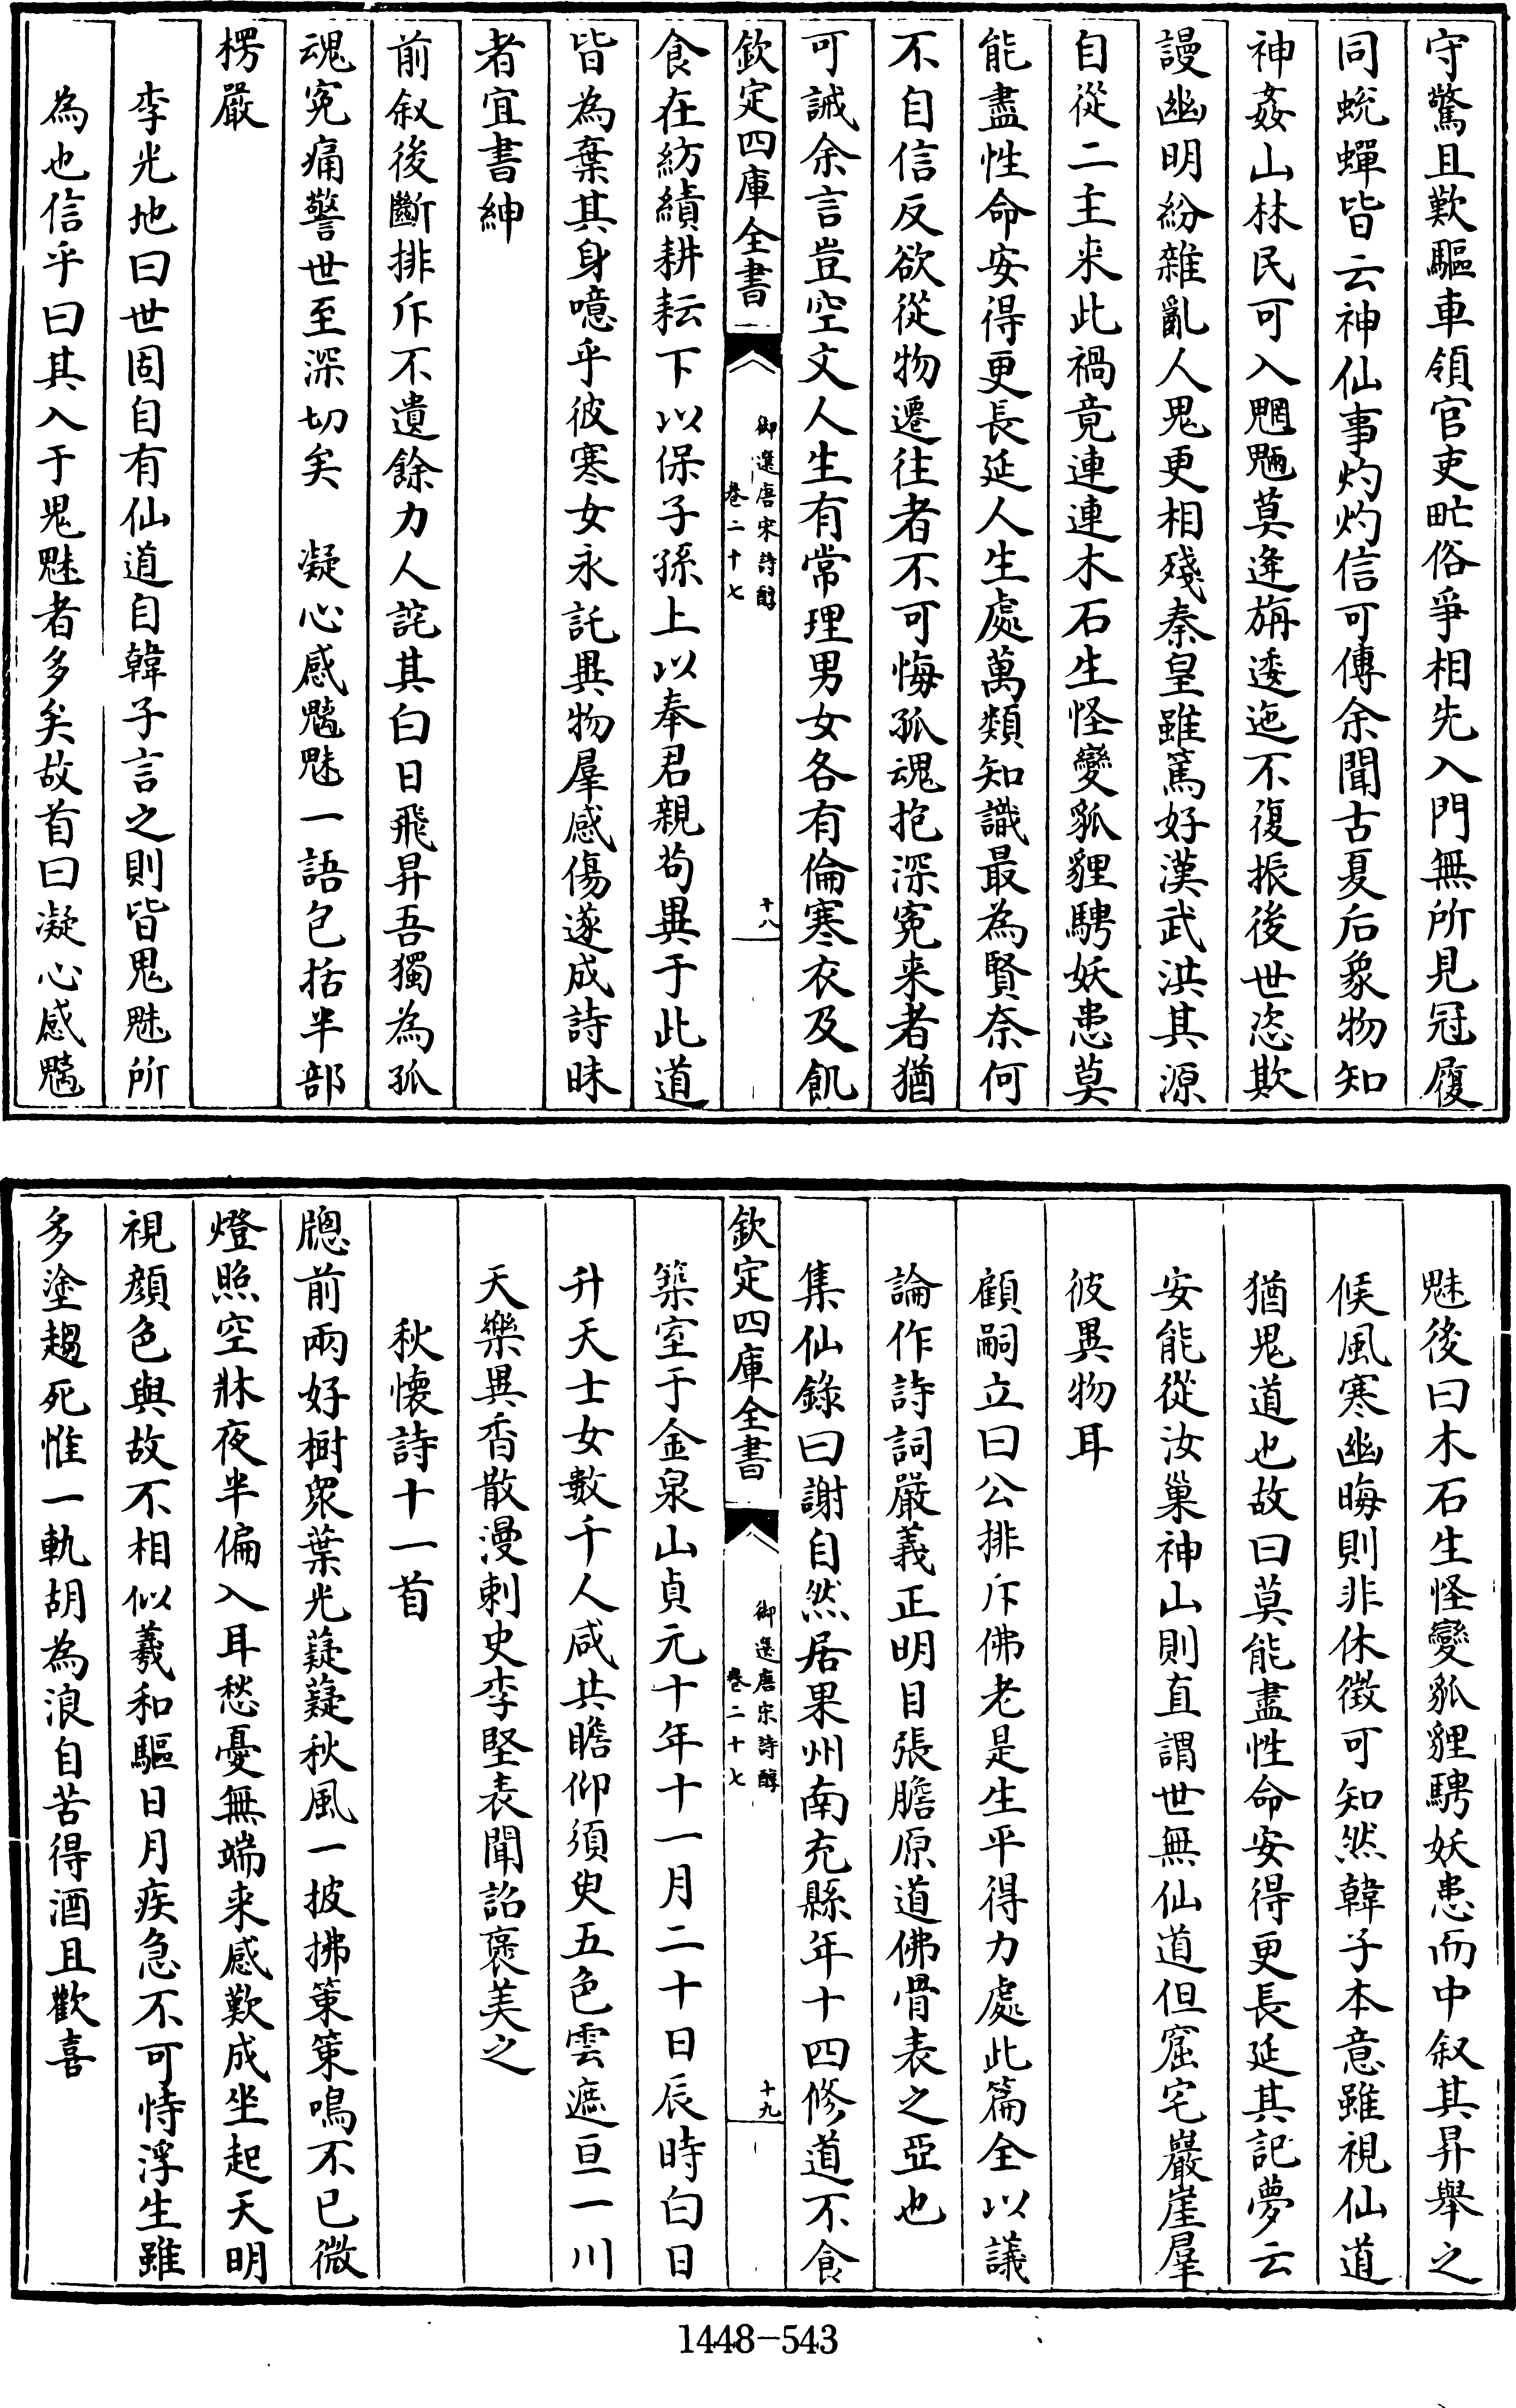 守驚且歎驅車領官吏甿俗爭相先入門無所見冠履
同蛻蟬皆云神仙事灼灼信可傳余聞古夏后象物知
神姦山林民可入魍魎莫逢旃逶迤不復振後世恣欺
謾幽明紛雜亂人鬼更相殘秦皇雖篤好漢武洪其源
自從二主来此禍竟連連木石生怪變狐貍騁妖患莫
能盡性命安得更長延人生處萬類知識最為賢奈何
不自信反欲從物遷往者不可悔孤魂抱深冤来者猶
可誡余言豈空文人生有常理男女各有倫寒衣及飢
欽定四庫全書
御選唐宋詩醇
卷二十七
十八
食在紡績耕耘下以保子孫上以奉君親苟異于此道
皆為棄其身噫乎彼寒女永託異物羣感傷遂成詩昧
者宜書紳
前叙後斷排斥不遺餘力人詫其白日飛昇吾獨為孤
魂冤痛警世至深切矣　凝心感魑魅一語包括半部
楞嚴
李光地曰世固自有仙道自韓子言之則皆鬼魅所
為也信乎曰其入于鬼魅者多矣故首曰凝心感魑
魅後曰木石生怪變狐貍騁妖患而中叙其昇舉之
候風寒幽晦則非休徴可知然韓子本意雖視仙道
猶鬼道也故曰莫能盡性命安得更長延其記夢云
安能從汝巢神山則直謂世無仙道但窟宅巖崖羣
彼異物耳
顧嗣立曰公排斥佛老是生平得力處此篇全以議
論作詩詞嚴義正明目張膽原道佛骨表之亞也
集仙錄曰謝自然居果州南充縣年十四修道不食
欽定四庫全書
御選唐宋詩醇
卷二十七
十九
築室于金泉山貞元十年十一月二十日辰時白日
升天士女數千人咸共瞻仰須臾五色雲遮亘一川
天樂異香散漫刺史李堅表聞詔褒美之
秋懐詩十一首
牕前兩好樹衆葉光薿薿秋風一披拂策策鳴不已微
燈照空牀夜半偏入耳愁憂無端来感歎成坐起天明
視顔色與故不相似羲和驅日月疾急不可恃浮生雖
多塗趨死惟一軌胡為浪自苦得酒且歡喜
1448-543